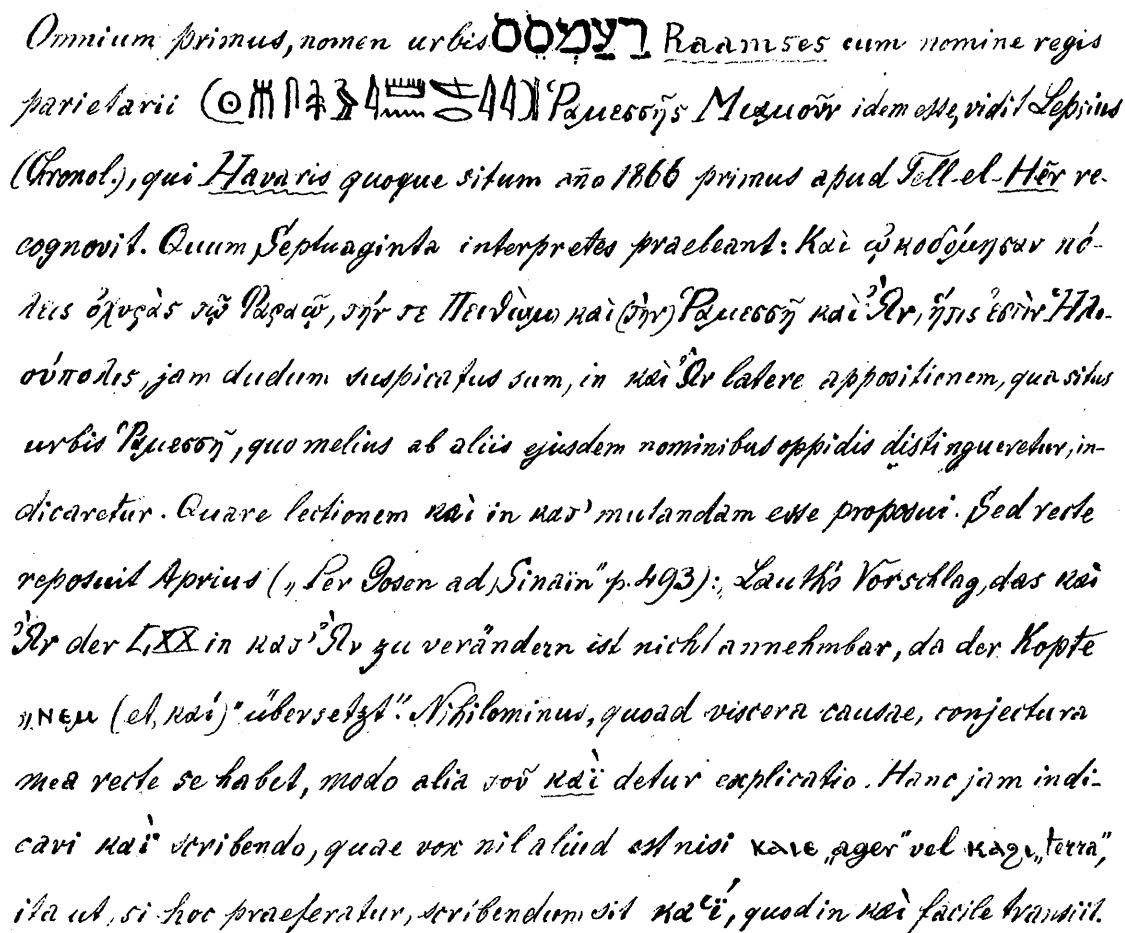 Omnium primus, nomen urbis רַעַמְסֵס Raamses cum nomine regis
parietarii Ῥαμεσσῆς Μιαμοῦν idem esse, vidit Lepsius
(Chronol.), qui Havaris quoque situm año 1866 primus apud Tell-el-Hêr re-
cognovit. Quum Septuaginta interpretes praebeant: Καὶ ᾠκοδόμησαν πό-
λεις ὀχυρὰς τῷ Φαραῷ, τήν τε Πειθὼμ καὶ (τὴν) Ῥαμεσσῆ καὶ Ὢν, ἥτις ἐστὶν Ἡλι-
ούπολις, jam dudum suspicatus sum, in καὶ Ὢν latere appositionem, qua situs
urbis Ῥαμεσσῆ, quo melius ab aliis ejusdem nominibus oppidis distingueretur, in-
dicaretur. Quare lectionem καὶ in κατ’ mutandam esse proposui. Sed recte
reposuit Aprius („Per Gosen ad Sinaïn” p. 493): „Lauth’s Vorschlag, das καὶ
Ὢν der LXX in κατ’ Ὢν zu verändern ist nicht annehmbar, da der Kopte
„ⲛⲉⲙ (et, καί)” übersetzt”. Nihilominus, quoad viscera causae, conjectura
mea recte se habet, modo alia τοῦ καὶ̈ detur explicatio. Hanc jam indi-
cavi καὶ̈ scribendo, quae vox nil aliud est nisi ⲕⲁⲓⲉ „ager” vel ⲕⲁϩⲓ „terra”,
ita ut, si hoc praeferatur, scribendum sit καʿΐ, quod in καὶ facile transiit.